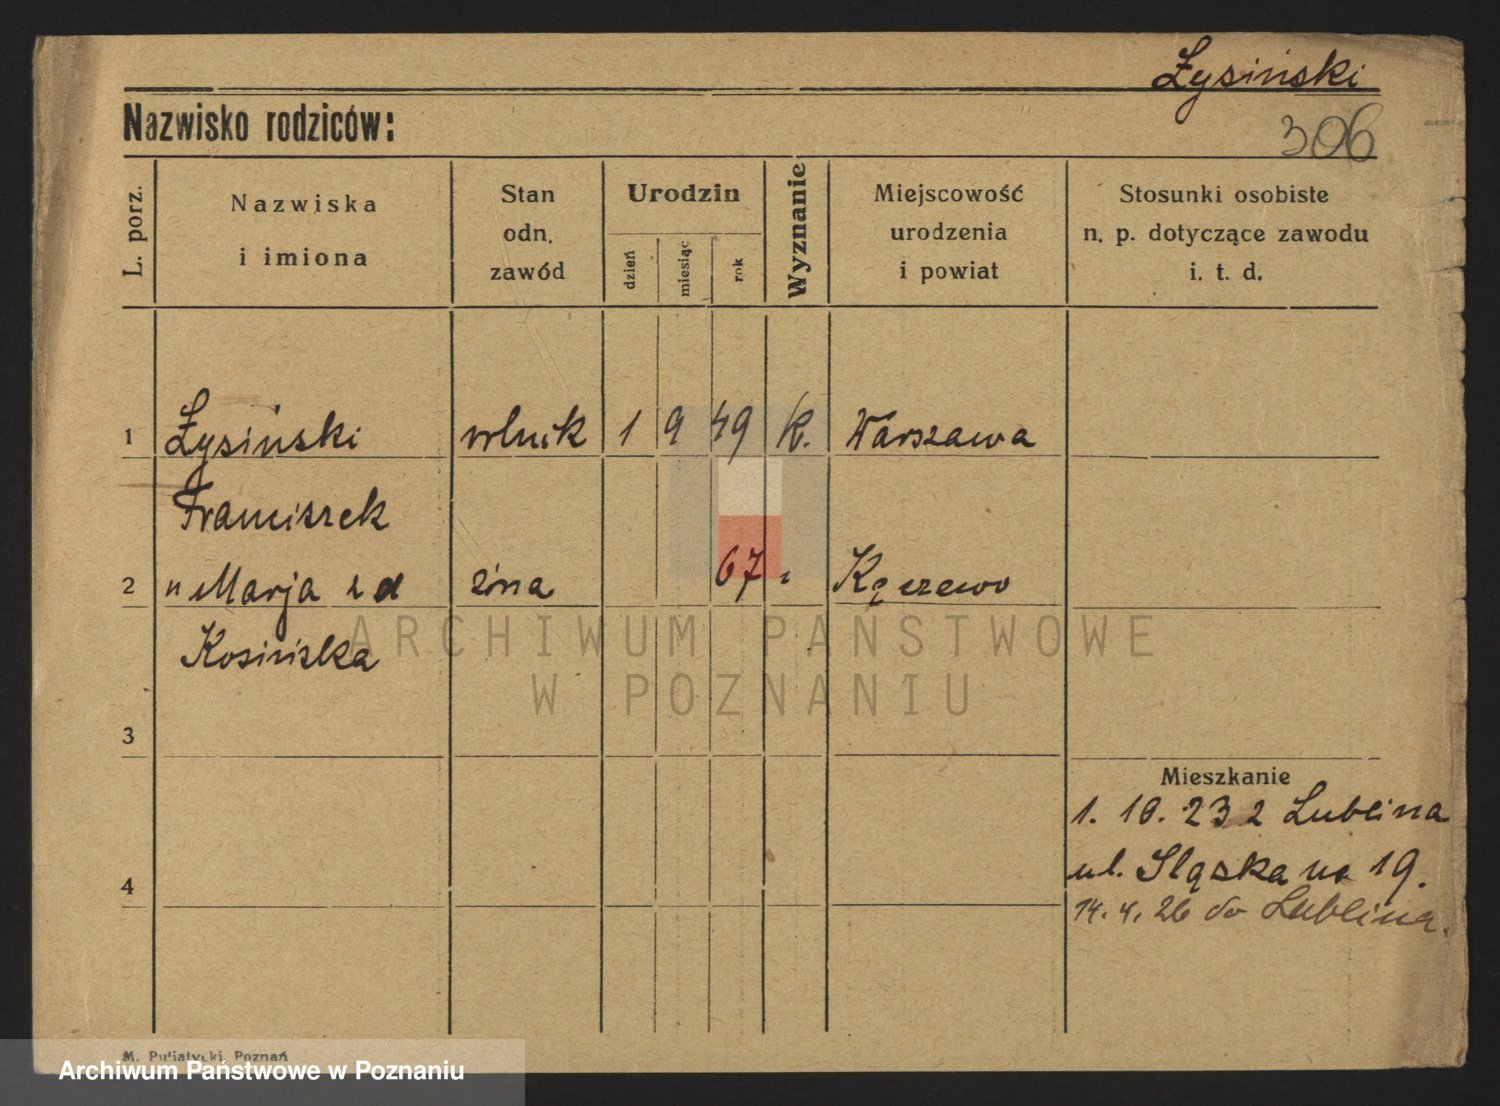 Żysiński
Nazwisko rodziców:
306
L. porz.
Nazwiska
i imiona
Stan
odn.
zawód
Urodzin
dzień
miesiąc
rok
Wyznanie
Miejscowość
urodzenia
i powiat
Stosunki osobiste
n. p. dotyczące zawodu
i. t. d.
1 Żysiński rolnik 1 9 49 K. Warszawa
Franciszek
2 " Marja z d żona 67 "
Kosińska
ARCHIWUM PAŃSTWOWE
W POZNANIU
3
Mieszkanie
1. 10. 23 z Lublina
ul. Śląska no 19.
4
14. 4. 26 do Lublina.
M. Putiatycki, Poznań
Archiwum Państwowe w Poznaniu